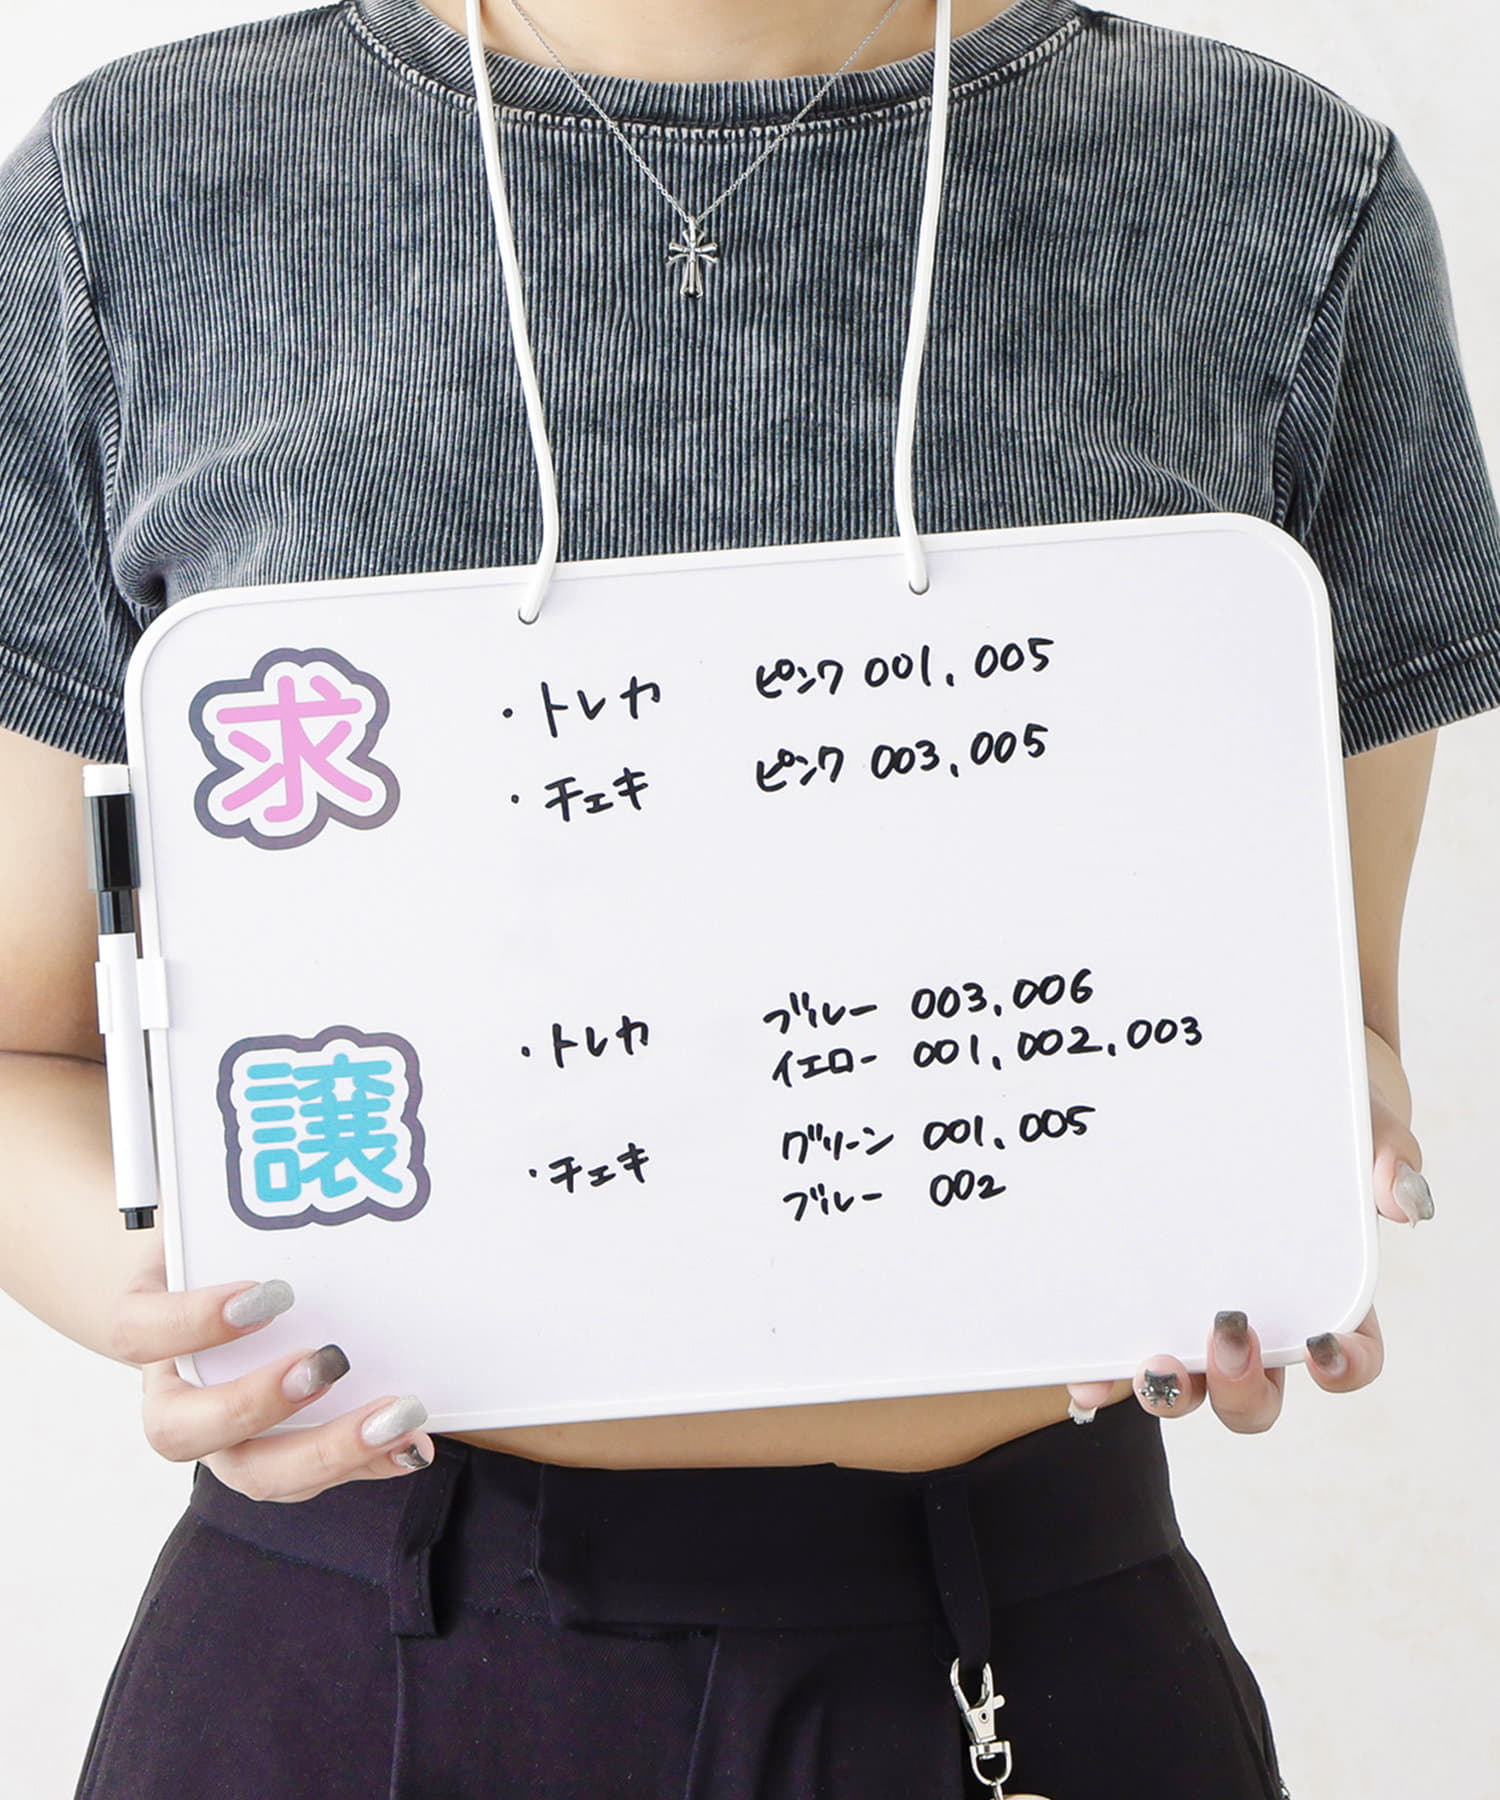 求
・トレカ ピンク 001, 005
・チェキ ピンク 003, 005
譲
・トレカ ブルー 003, 006
イエロー 001, 002, 003
・チェキ グリーン 001, 005
ブルー 002